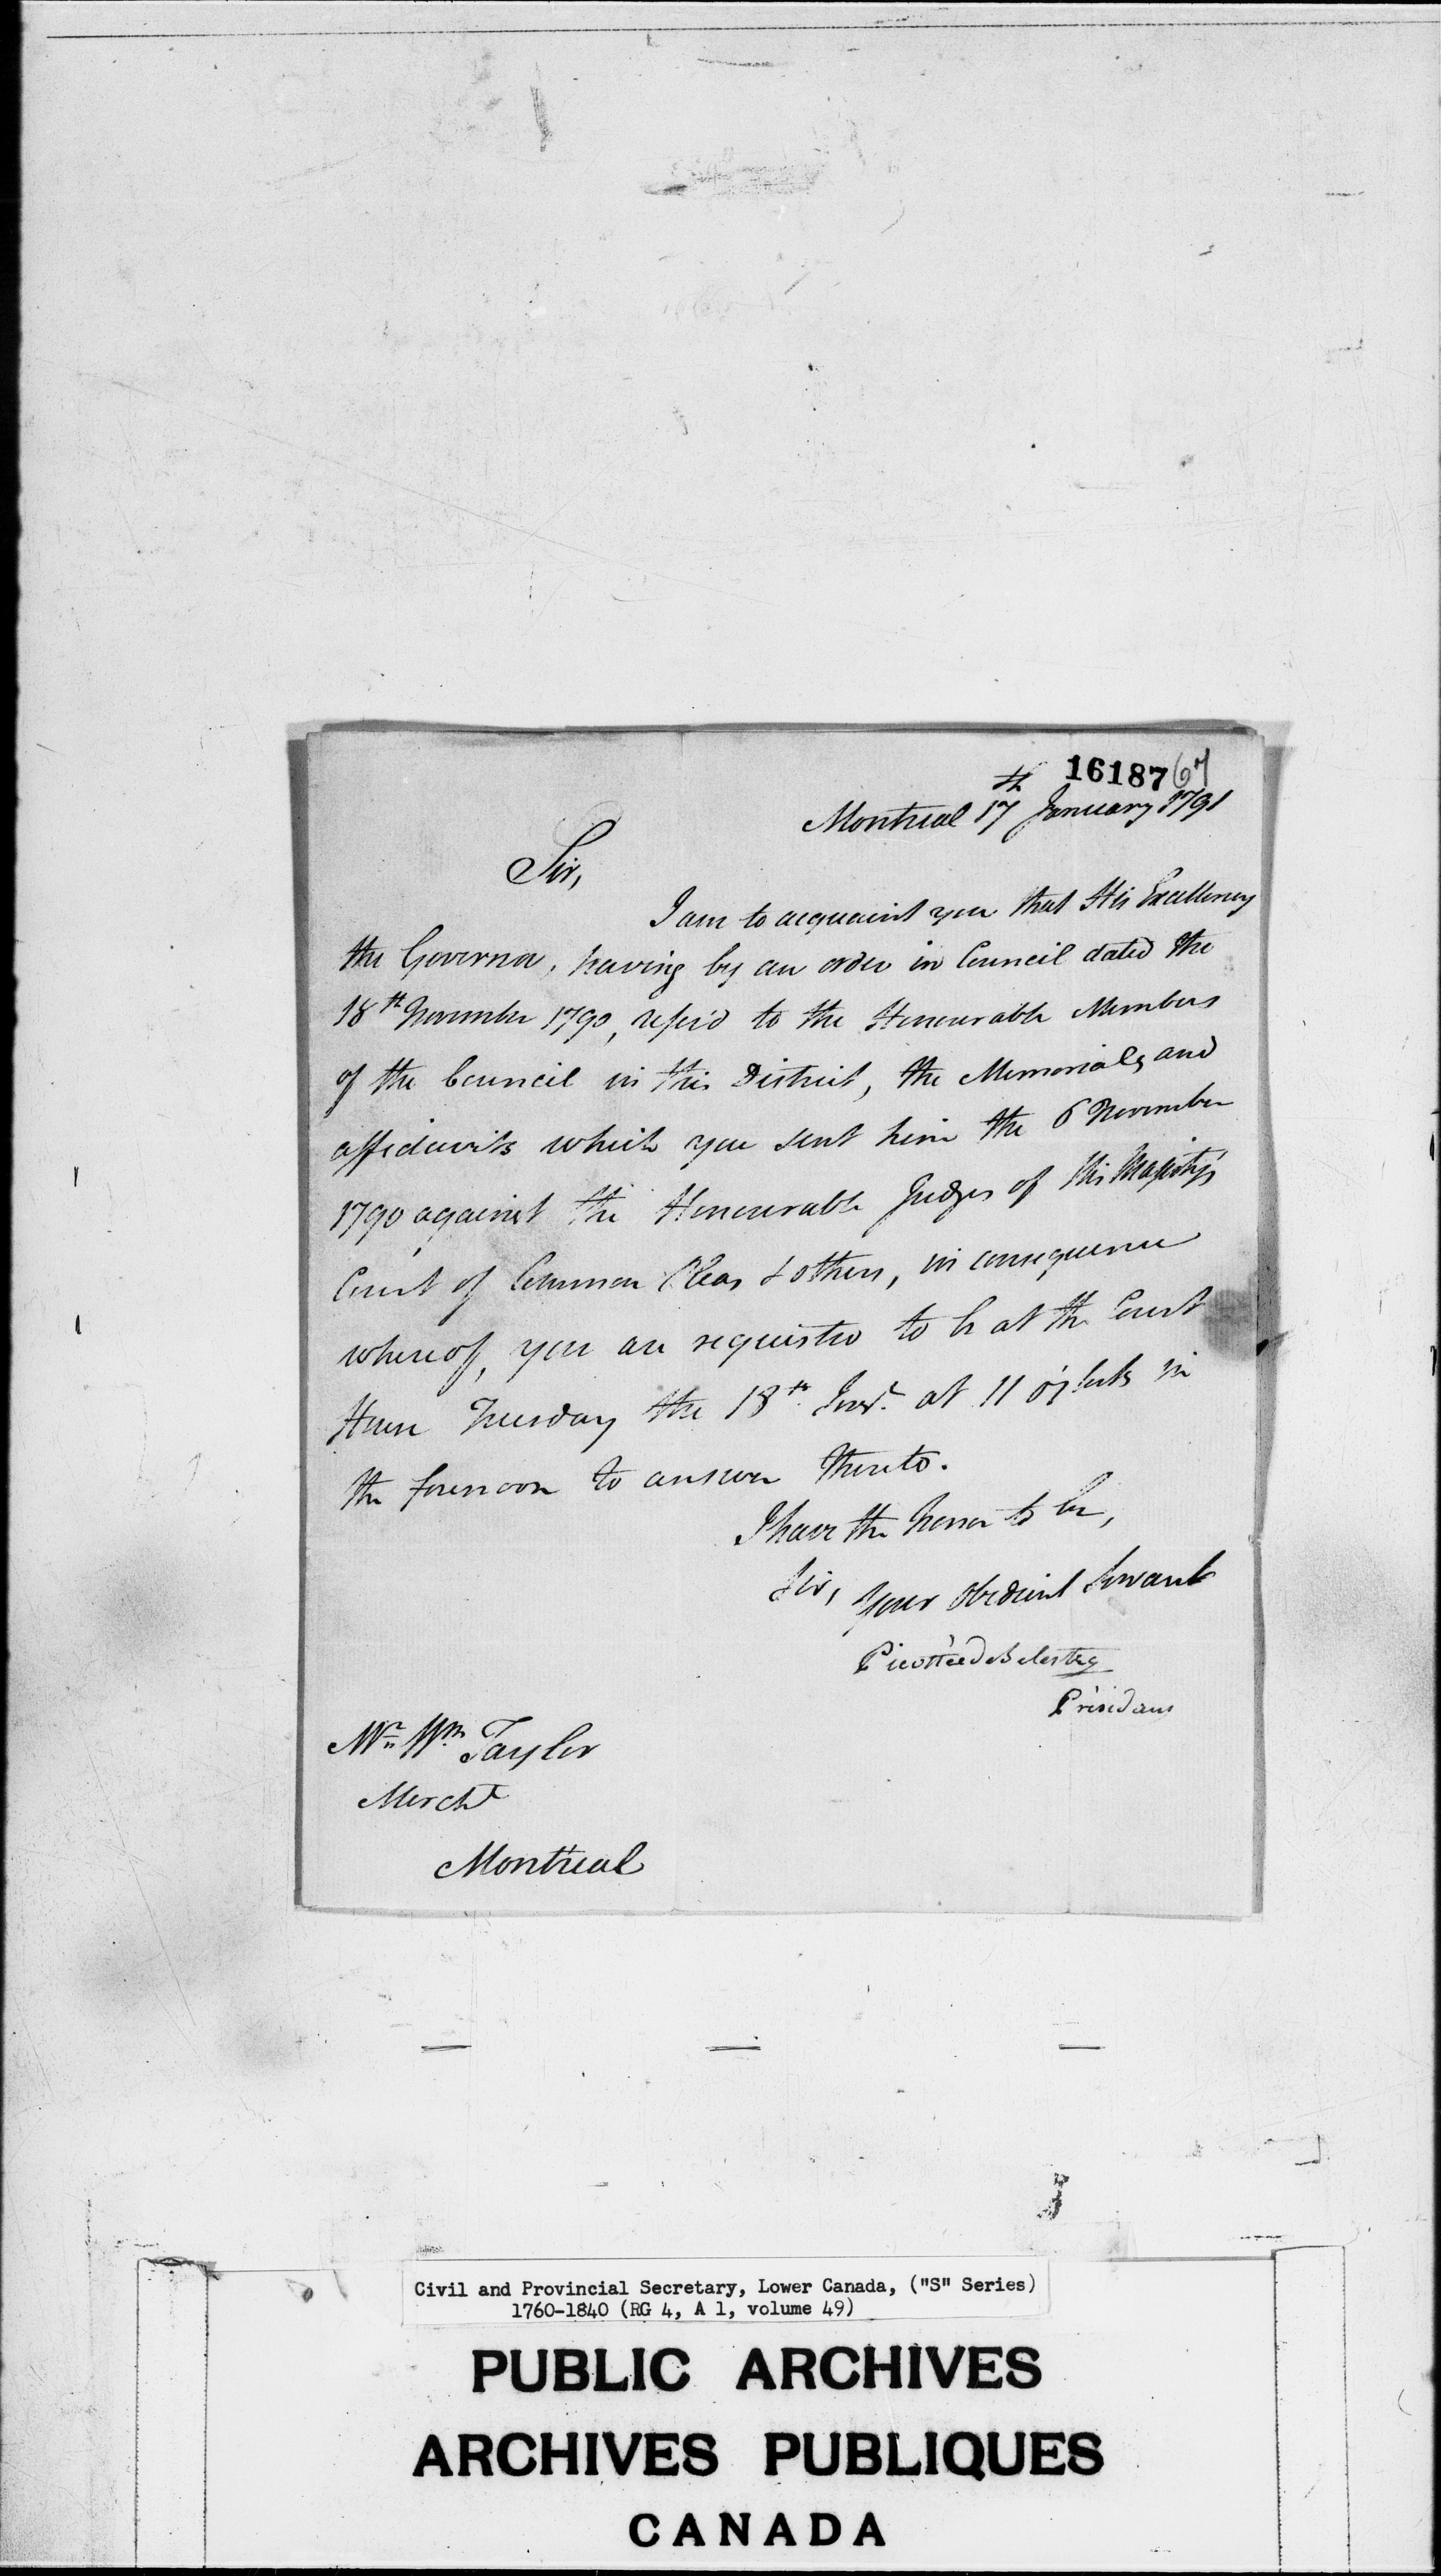 16187 67
Montreal 17th January 1791
Sir,
I am to acquaint you that His Excellency
the Governor, having by an order in Council dated the
18th November 1790, refer'd to the Honourable Members
of the Council in this District, the Memorials and
affidavits which you sent him the 6 November
1790 against the Honourable Judges of His Majesty's
Court of Common Pleas & others, in consequence
whereof, you are requested to be at the Court
House Tuesday the 18th Inst. at 11 o'Clock in
the forenoon to answer thereto.
I have the honor to be,
Sir, your obedient Servant
Picotté de Belestre
Présidant
Mr. Wm. Taylor
Mercht
Montreal
Civil and Provincial Secretary, Lower Canada, ("S" Series)
1760-1840 (RG 4, A 1, volume 49)
PUBLIC ARCHIVES
ARCHIVES PUBLIQUES
CANADA